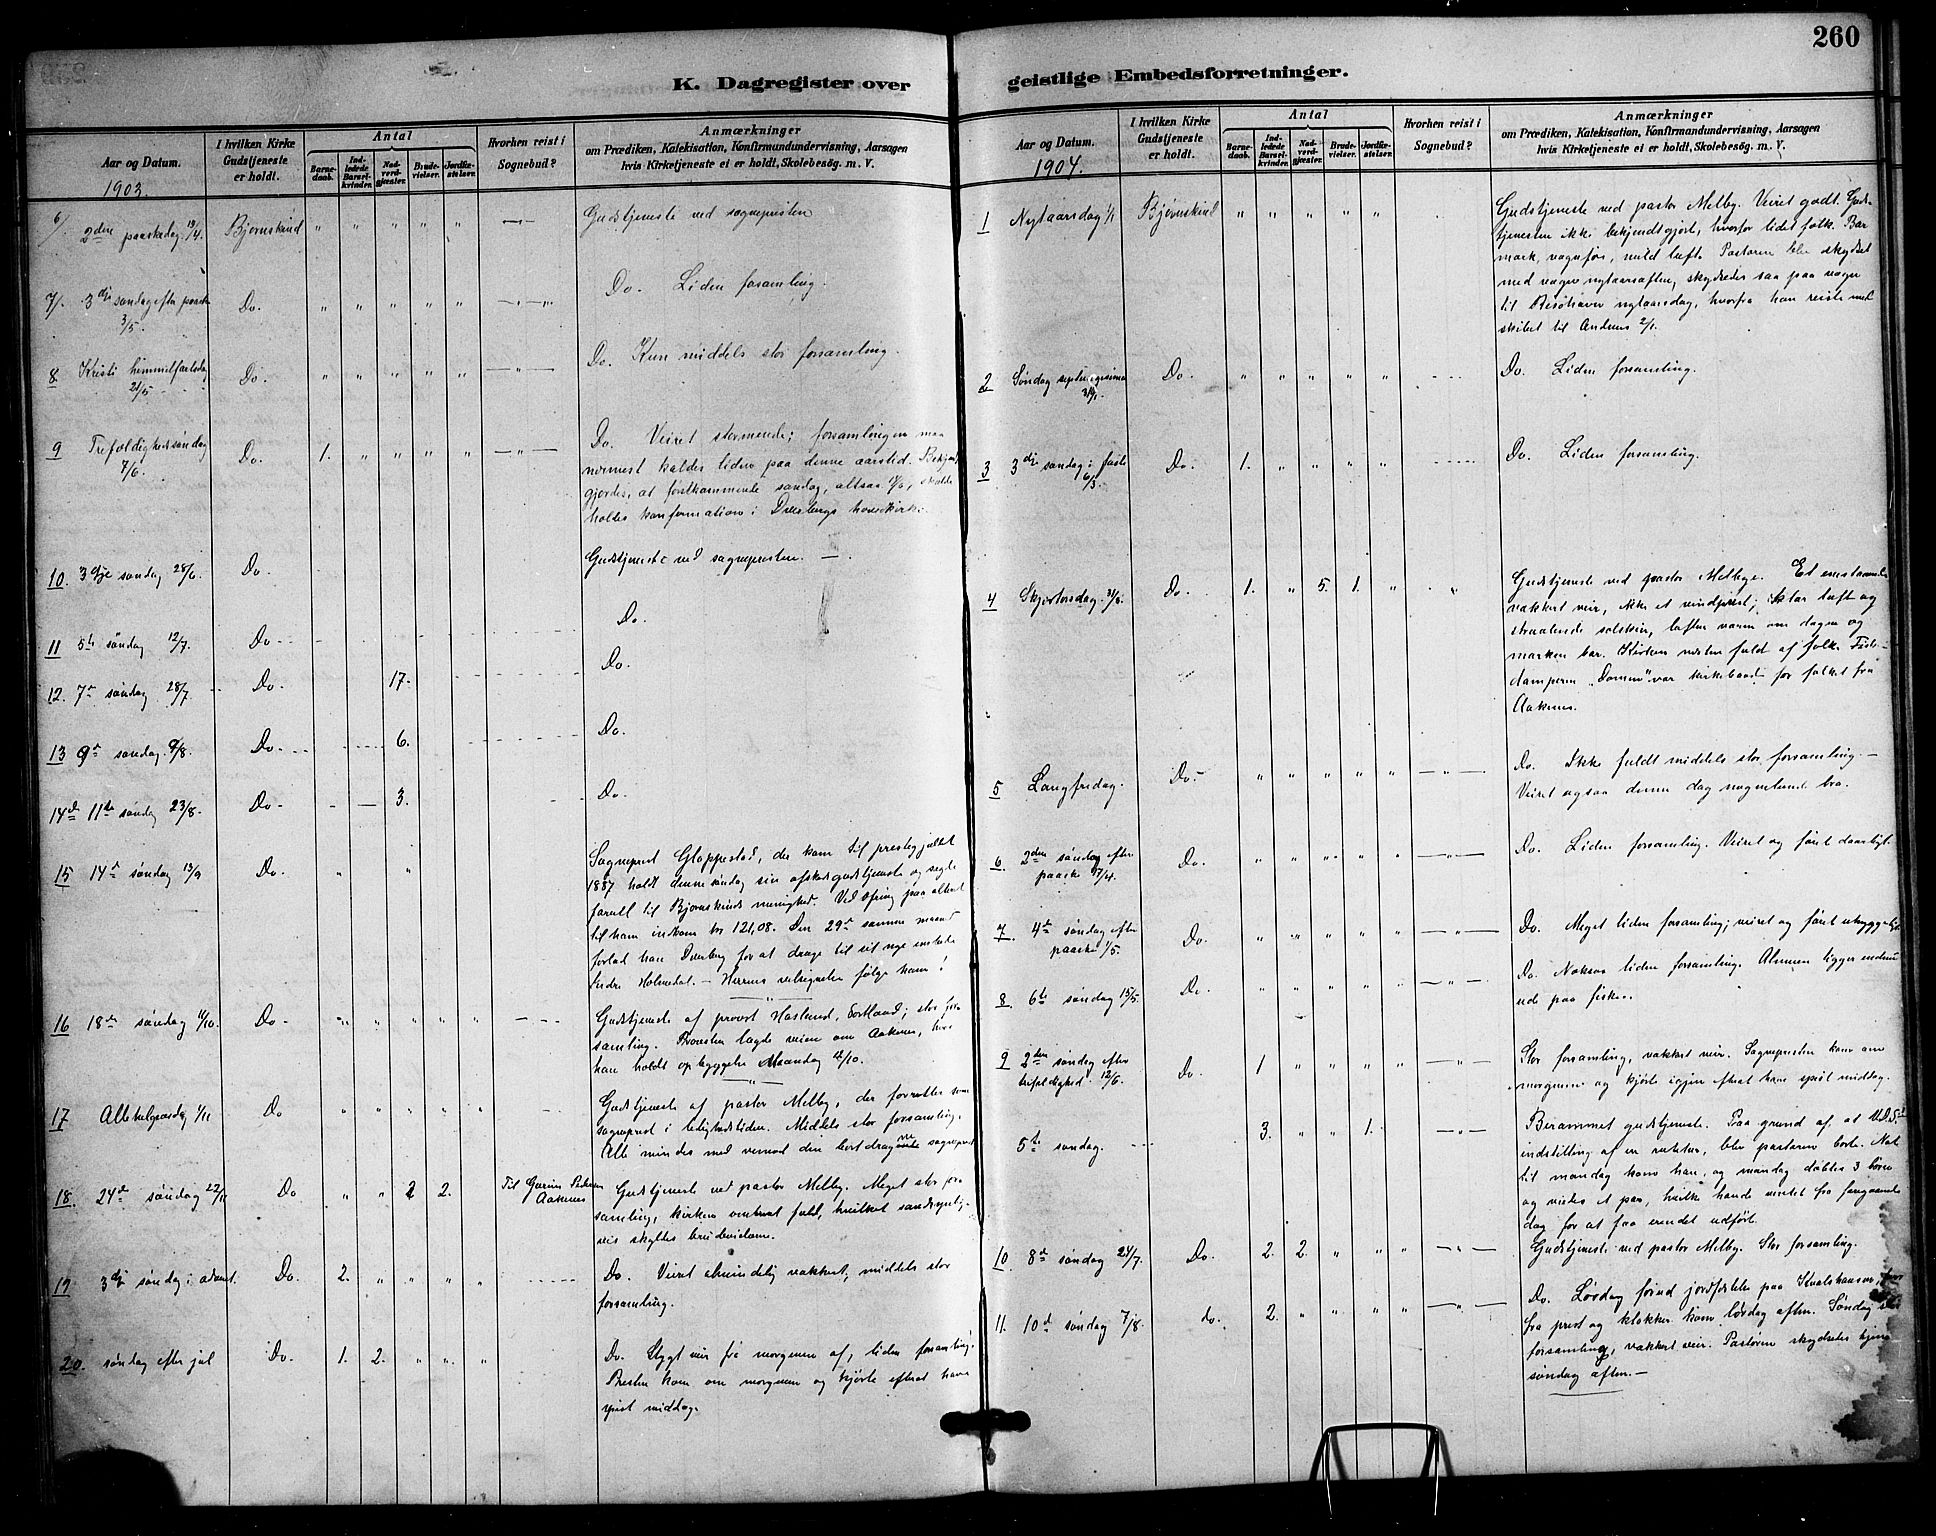 260
K. Dagregister over
Aar og Datum.
1903.
I hvilken Kirke
Gudstjeneste
er holdt.
Antal
Barne-
daab.
Ind-
ledede
Barsel-
kvinder.
Nad-
verd-
gjæster.
Brude-
vielser.
Jordfæ-
stelser.
Hvorhen reist i
Sognebud?
Anmærkninger
om Prædiken, Katekisation, Konfirmandundervisning, Aarsagen
hvis Kirketjeneste ei er holdt, Skolebesøg. m. V.
6/ 2den paaskedag 13/4. Bjørnskind " " " " " Gudstjeneste ved sognepresten
7/. 3die søndag efter paaske Do. " " " " " Do. Liden forsamling.
3/5.
8 Kristi himmelfartsdag Do. " " " " " Do. Kun middels stor forsamling.
21/5
9 Trefoldighedssøndag Do. 1. " " " " Do. Veiret stormende; forsamlingen maa
7/6. nærmest kaldes liden paa denne aarstid. Bekjent-
gjordes, at førstkommende søndag, altsaa 14/6, skulde
holdes konfirmation i Dverbergs hovedkirke.
10. 3die søndag 28/6. Do. Gudstjeneste ved sognepresten. —
11 5te søndag 12/7. Do Do.
12. 7de søndag 28/7 Do. 17. Do.
13 9de søndag 9/8. Do. 6. Do.
14de 11te søndag 23/8. Do. 3. Do.
15 14de søndag 13/9 Do. " " Sogneprest Gloppestad, der kom til prestegjældet
1887 holdt denne søndag sin afskedsgudstjeneste og sagde
farvel til Bjørnskinds menighed. Ved ofring paa alteret
til ham indkom kr 121,08. Den 29de samme maaned
forlod han Dverberg for at drage til sit nye embede
Indre Holmedal. — Herrens velsignelse følge ham!
16 18de søndag 11/10. Do " " " " " Gudstjeneste af provst Haslund, Sortland; stor for-
samling. Provsten lagde veien om Aakenes, hvor
han holdt opbyggelse Maandag 12/10.
17 Allehelgensdag 1/11 Do " " " " " Gudstjeneste af pastor Melby, der forretter som
sogneprest i ledighedstiden. Middels stor forsamling.
Alle mindes med vemod den bortdragende sogneprest
18. 24de søndag 22/11 Do " " 2 2. Til Aakenes Gudstjeneste ved pastor Melby. Meget stor for-
samling, kirken omtrent fuld, hvilket sandsynlig-
vis skyldes brudevielserne.
19 3die søndag i advent. Do. 2. " " " " Do. Veiret almindelig vakkert; middels stor
forsamling.
20. søndag efter jul Do. 1. 2. " " " Do. Stygt veir fra morgenen af; liden forsamling.
Presten kom om morgenen og kjørte efterat have
spist middag.
geistlige Embedsforretninger.
Aar og Datum.
1904.
I hvilken Kirke
Gudstjeneste
er holdt.
Antal
Barne-
daab.
Ind-
ledede
Barsel-
kvinder.
Nad-
verd-
gjester.
Brude-
vielser.
Jordfæ-
stelser.
Hvorhen reist i
Sognebud?
Anmærkninger
om Prædiken, Katekisation, Konfirmandundervisning, Aarsagen
hvis Kirketjeneste ei er holdt, Skolebesøg. m. V.
1 Nytaarsdag 1/1 Bjørnskind " " " " " Gudstjeneste ved pastor Melby. Veiret godt. Guds-
tjenesten ikke bekjendtgjort, hvorfor lidet folk. Bar
mark, vognføre, mild luft. Pastoren blev skydset
med vogn nytaarsaften, skydsedes saa paa vogn
til Risøhavn nytaarsdag, hvorfra han reiste med
skibet til Andenes 2/1.
2 Søndag septuagesima Do. " " " " " Do. Liden forsamling.
31/1.
3 3die søndag i faste Do. 1. " " " " Do. Liden forsamling.
6/3.
4 Skjærtorsdag. 31/3. Do. 1. " 5. 1. " Gudstjeneste ved pastor Melbye. Et enestaaende
vakkert veir, ikke et vindpust; klar luft og
straalende solskin, luften varm om dagen og
marken bar. Kirken næsten fuld af folk. Fiske-
damperen "Domen" var kirkebaad for folket fra
Aakenes.
5 Langfredag. Do. " " " " " Do. Ikke fuldt middels stor forsamling. —
Veiret ogsaa denne dag nogenlunde bra.
6 2den søndag efter Do. " " " " " Do. Liden forsamling. Veiret og føret daarligt.
paaske 17/4.
7. 4de søndag efter Do. " " " " " Do. Meget liden forsamling; veiret og føret uhyggeligt
paaske 1/5.
8 6te søndag 15/5. Do. " " " " " Do. Noksaa liden forsamling. Almuen ligger endnu
ud paa fiske.
9 2den søndag efter Do. 1 " " " " Stor forsamling, vakkert veir. Sognepresten kom om
trefoldighed. 12/6. morgenen og kjørte igjen efterat have spist middag.
5te søndag. 3. " " 1. " Berammet gudstjeneste. Paa grund af, at
indstilling af en rutetur, blev pastoren borte. Nat
til mandag kom han, og mandag døbtes 3 børn
og viedes et par, hvilke havde ventet fra foregaaende
dag for at faa erendet udført.
10 8de søndag 24/7. Do. 2. 2. " " " Gudstjeneste ved pastor Melby. Stor forsamling.
11. 10de søndag 7/8. do. 2. " " " " Do. Lørdag forud jordfæstelse paa Kvalshausen,
fra prest og klokker kom lørdag aften. Søndag stor
forsamling, vakkert veir. Pastoren skydsedes hjem
søndag aften. —